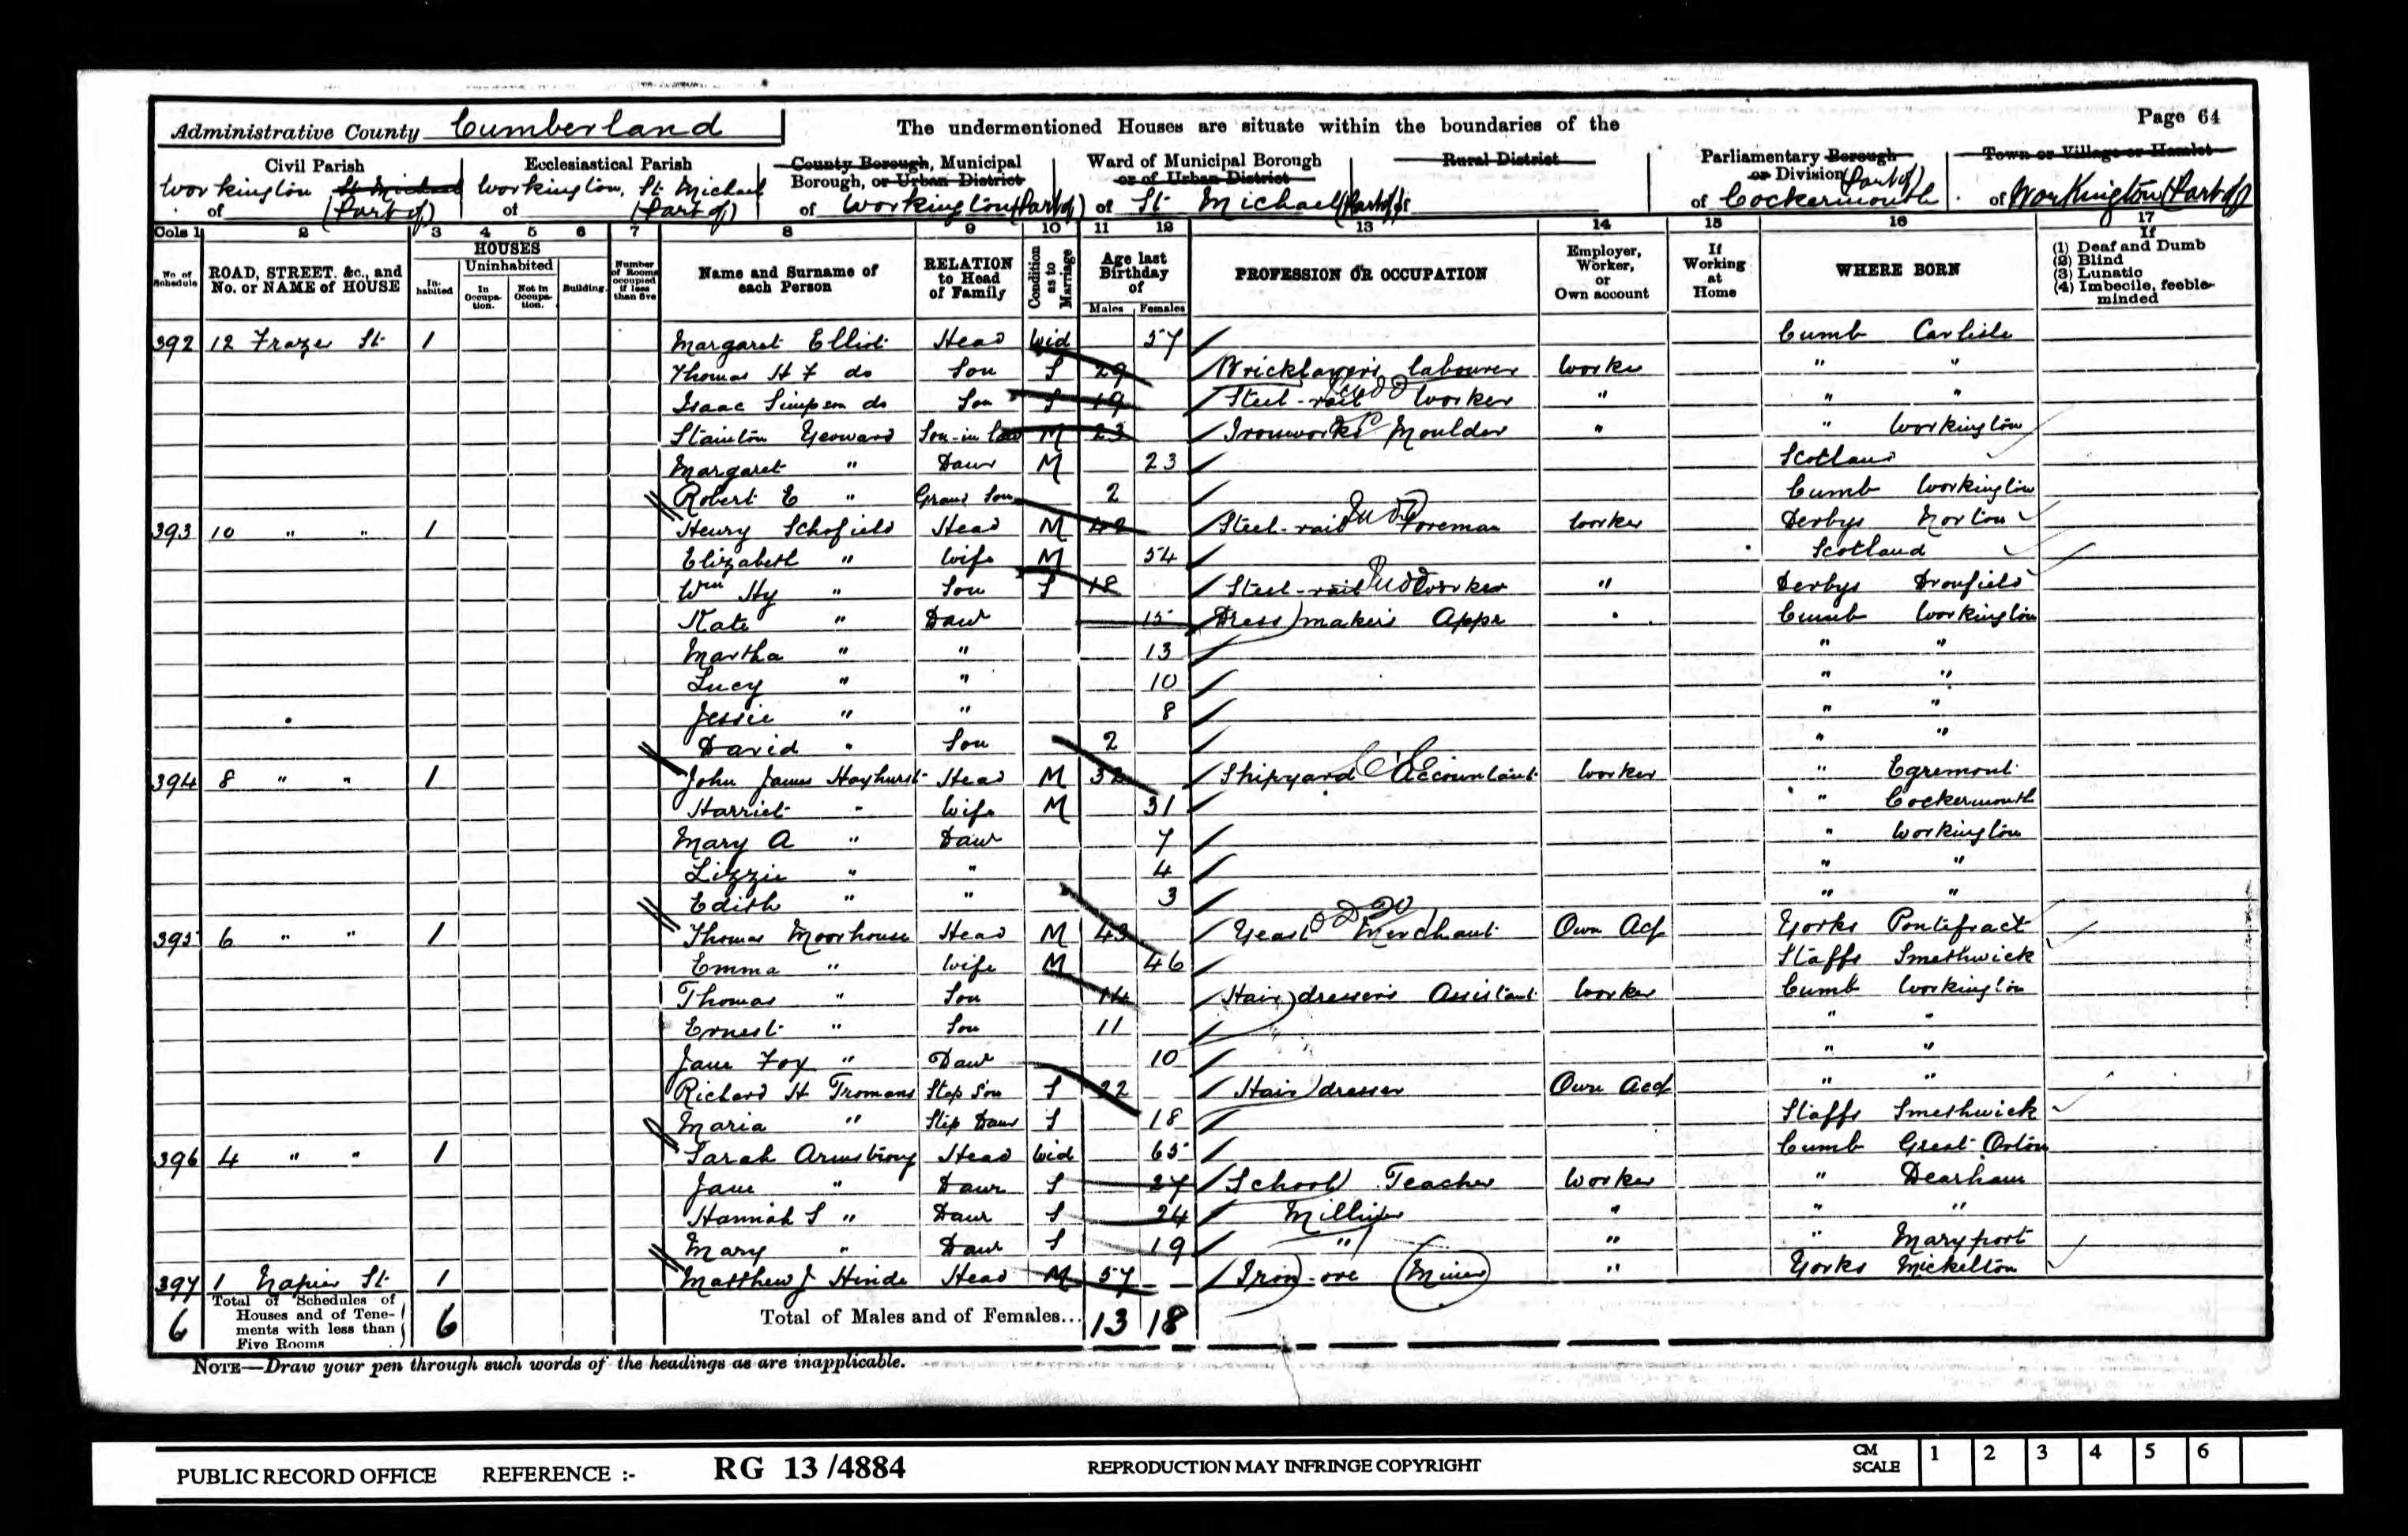 Administrative County Cumberland
The undermentioned Houses are situate within the boundaries of the
Page 64
Civil Parish
Workington St Michael
of (Part of)
Ecclesiastical Parish
Workington, St. Michael
of (Part of)
County Borough, Municipal
Borough, or Urban District
of Workington (Part of)
Ward of Municipal Borough
or of Urban District
of St. Michael (Part of)
Rural District
of
Parliamentary Borough
or Division (Part of)
of Cockermouth
Town or Village or Hamlet
of Workington (Part of)
Cols 1 2 3 4 5 6 7 8 9 10 11 12 13 14 15 16 17
No. of Schedule
ROAD, STREET, &c., and No. or NAME of HOUSE
HOUSES
In-habited
Uninhabited
In Occupa-tion.
Not in Occupa-tion.
Building.
Number of Rooms occupied if less than five
Name and Surname of each Person
RELATION to Head of Family
Condition as to Marriage
Age last Birthday of
Males Females
PROFESSION OR OCCUPATION
Employer, Worker, or Own account
If Working at Home
WHERE BORN
If
(1) Deaf and Dumb
(2) Blind
(3) Lunatic
(4) Imbecile, feeble-minded
392 12 Frazer St. 1 Margaret Elliot Head Wid 57 Cumb Carlisle
Thomas H F do Son S 29 Bricklayers labourer Worker " "
Isaac Simpson do Son S 19 Steel-rail Worker " " "
Stainton Yeoward Son-in law M 23 Ironworks Moulder " " Workington
Margaret " Daur M 23 Scotland
Robert E " Grand Son 2 Cumb Workington
393 10 " " 1 Henry Schofield Head M 42 Steel-rail Foreman Worker Derbys Norton
Elizabeth " Wife M 54 Scotland
Wm Hy " Son S 18 Steel-rail Worker " Derbys Dronfield
Kate " Daur 15 Dress maker's Appr Cumb Workington
Martha " " 13 " "
Lucy " " 10 " "
Jessie " " 8 " "
David " Son 2 " "
394 8 " " 1 John James Hayhurst Head M 32 Shipyard Accountant Worker " Egremont
Harriet " Wife M 31 " Cockermouth
Mary A " Daur 7 " Workington
Lizzie " " 4 " "
Edith " " 3 " "
395 6 " " 1 Thomas Moorhouse Head M 43 Yeast Merchant Own Acc Yorks Pontefract
Emma " Wife M 46 Staffs Smethwick
Thomas " Son 14 Hair dressers Assistant Worker Cumb Workington
Ernest " Son 11 " "
Jane Fox " Daur 10 " "
Richard H Tromans Step Son S 22 Hair dresser Own Acc " "
Maria " Step Daur S 18 Staffs Smethwick
396 4 " " 1 Sarah Armstrong Head Wid 65 Cumb Great Orton
Jane " Daur S 27 School Teacher Worker " Dearham
Hannah S " Daur S 24 Milliner " " "
Mary " Daur S 19 " " " Maryport
397 1 Napier St. 1 Matthew J Hinde Head M 57 Iron-ore Miner " Yorks Mickelton
6 Total of Schedules of Houses and of Tene-ments with less than Five Rooms 6 Total of Males and of Females... 13 18
NOTE—Draw your pen through such words of the headings as are inapplicable.
PUBLIC RECORD OFFICE REFERENCE :- RG 13 /4884 REPRODUCTION MAY INFRINGE COPYRIGHT CM SCALE 1 2 3 4 5 6